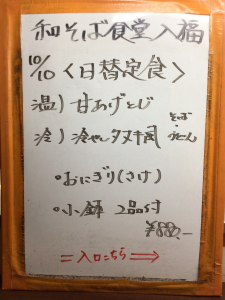 和そば食堂 入福
10/10〈日替定食〉
温)甘あげとじ
冷)冷やしタヌキ風 そば・うどん
・おにぎり(さけ)
・小鉢 2品付
¥880.-
=入口こちら⇒